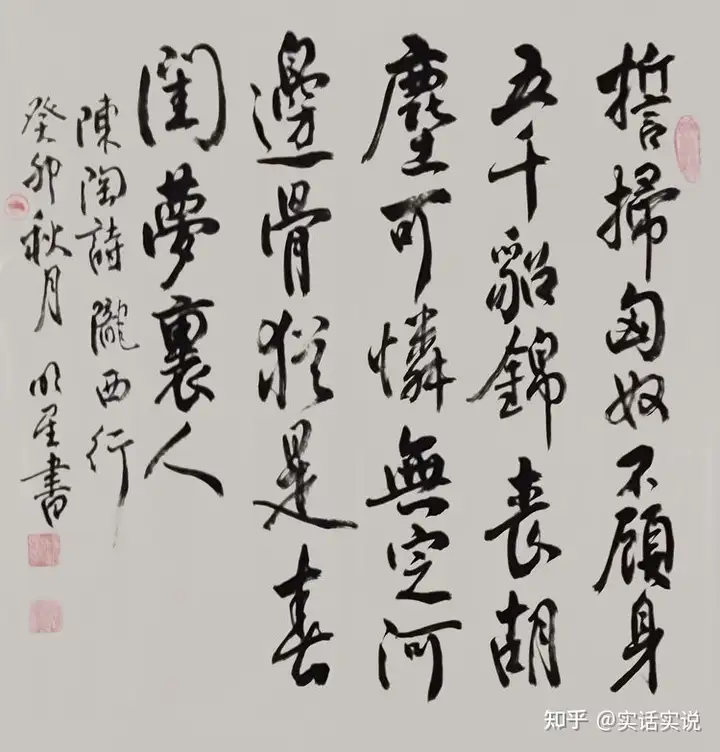 誓掃匈奴不顧身
五千貂錦喪胡
塵可憐無定河
邊骨猶是春
閨夢裏人
陳陶詩隴西行
癸卯秋月 明星書
知乎 @实话实说